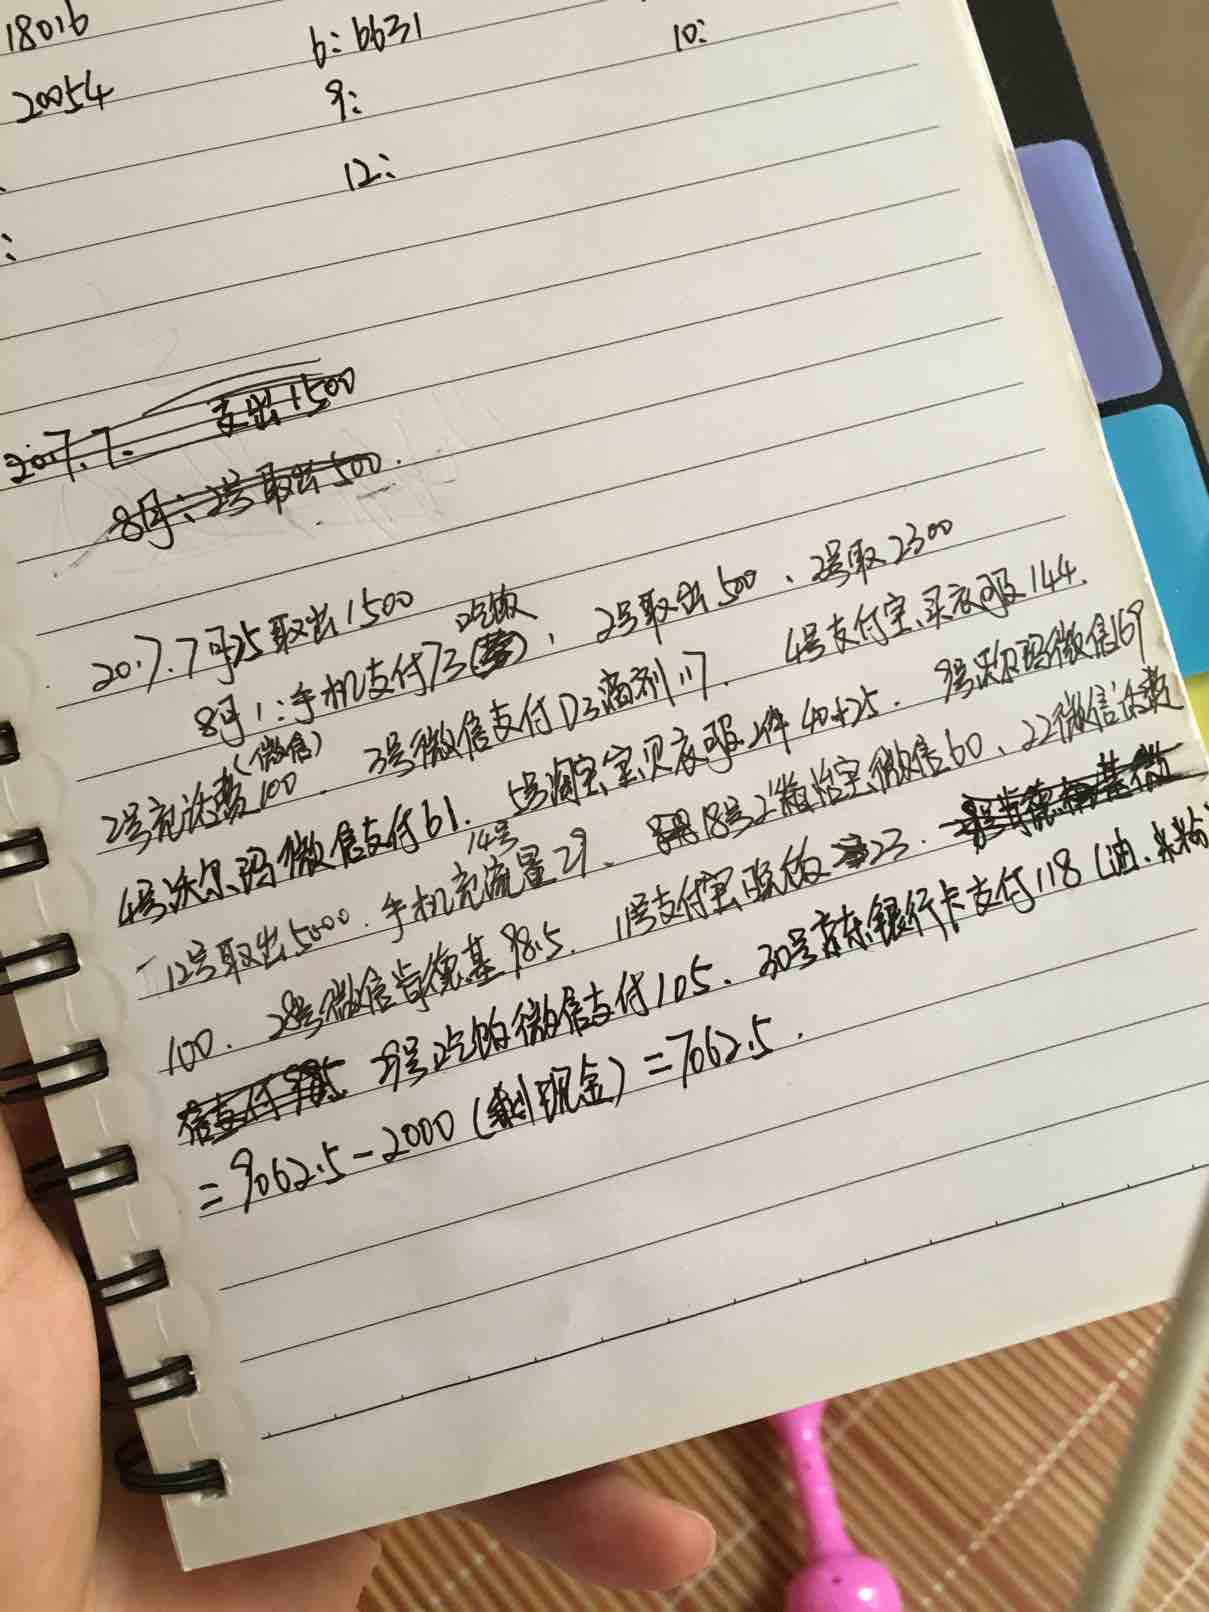 18016 6:6631 10:
20054 9:
12:
:
2017.7. 支出1500
8月:2号取出500.
2017.7月25取出1500
8月1:手机支付73(吃饭)、2号取出500、2号取2300
2号充话费(微信)100、3号微信支付D3滴剂117、4号支付宝买衣服144.
4号沃尔玛微信支付61. 5号淘宝宝贝衣服2件40+25. 9号沃尔玛微信169
12号取出5000. 手机充流量14号29、18号微信60、22微信话费
100. 28号微信肯德基98.5. 11号支付宝晚饭23.
信支付 29号吃饭微信支付105、30号京东银行卡支付118(油、米粉
=9062.5-2000(剩现金)=7062.5.